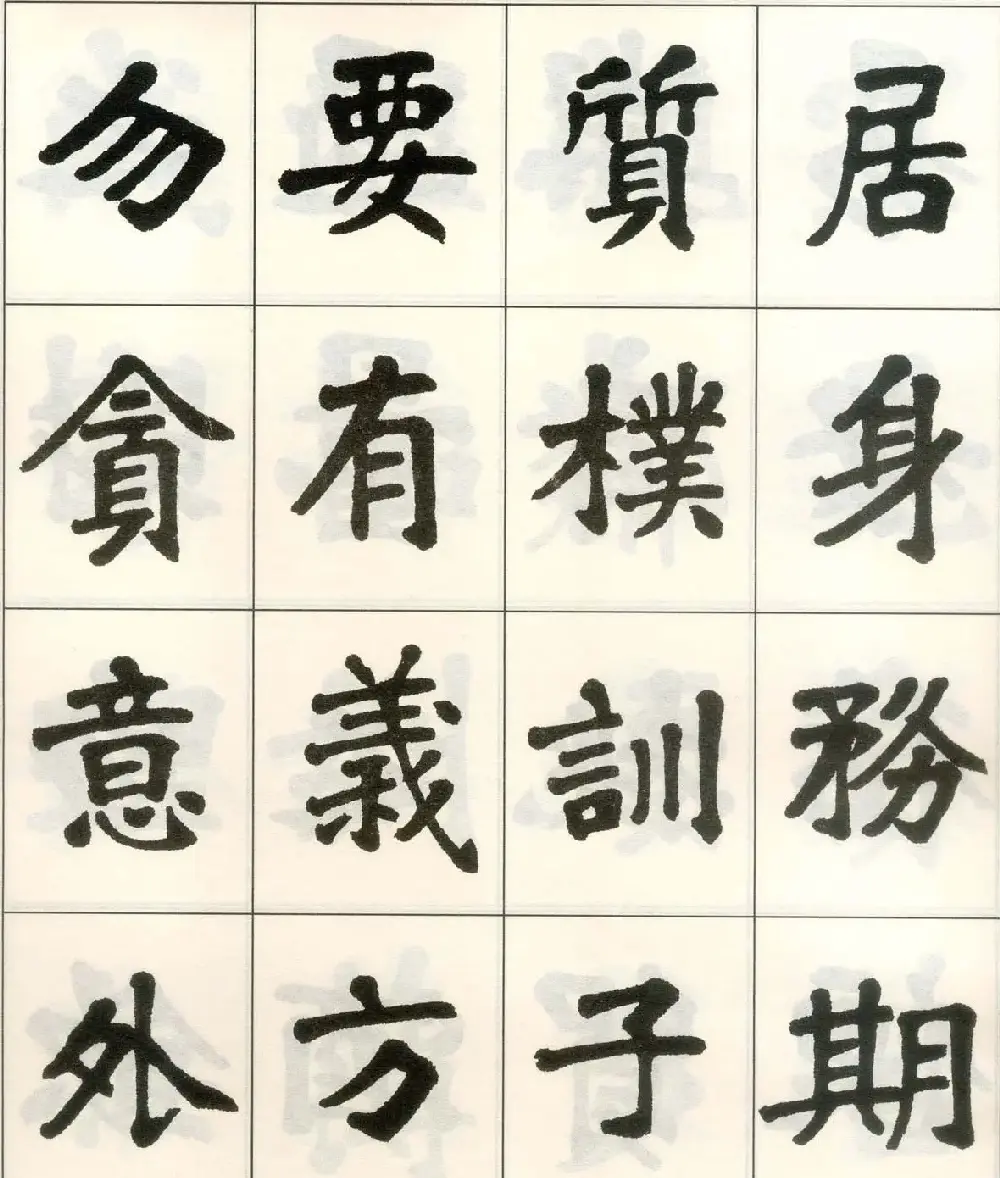 居身務期
質樸訓子
要有義方
勿貪意外